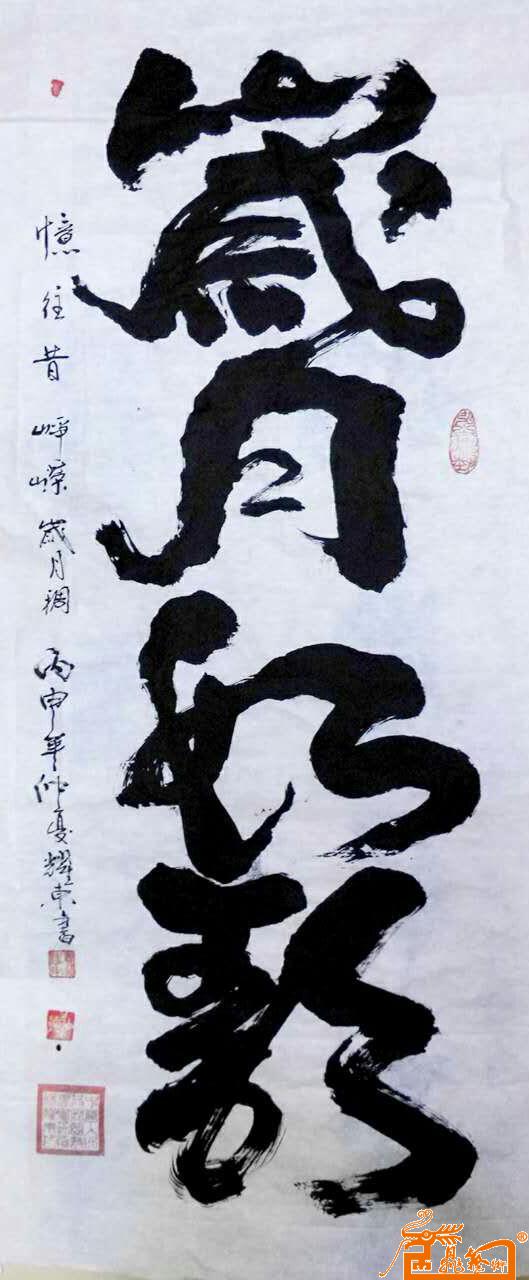 歲月如歌
憶往昔 崢嶸歲月稠
丙申年仲夏耀東書